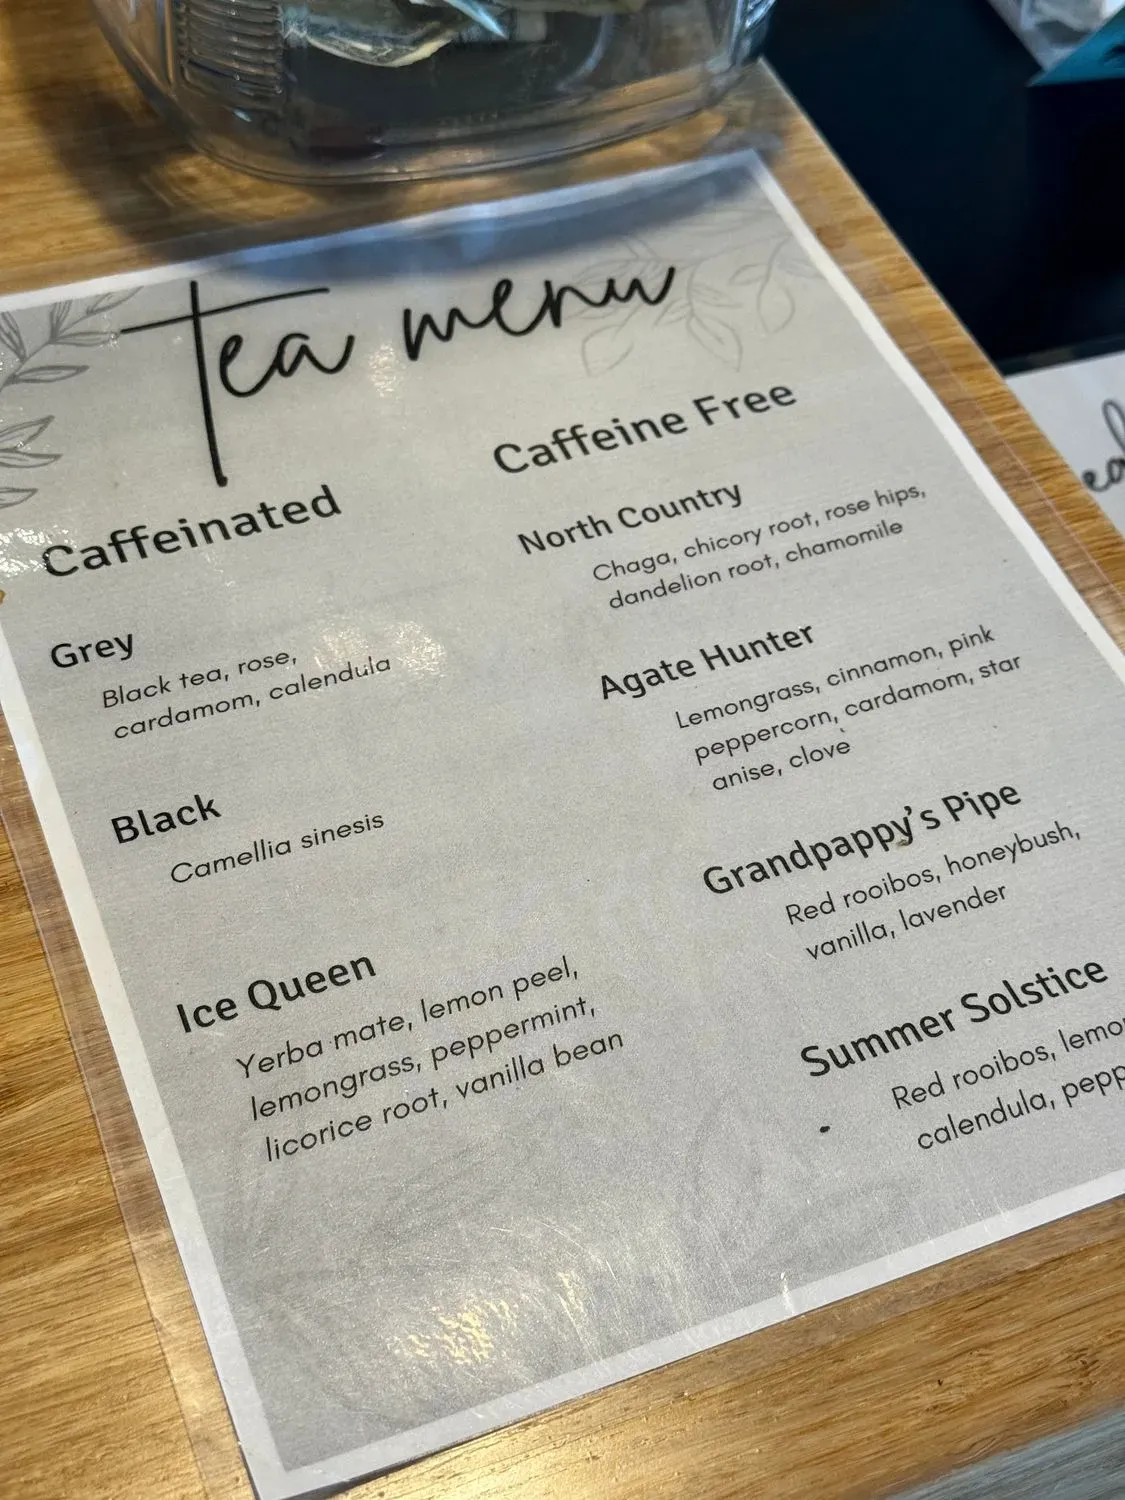 tea menu
Caffeinated
Grey
Black tea, rose,
cardamom, calendula
Black
Camellia sinesis
Ice Queen
Yerba mate, lemon peel,
lemongrass, peppermint,
licorice root, vanilla bean
Caffeine Free
North Country
Chaga, chicory root, rose hips,
dandelion root, chamomile
Agate Hunter
Lemongrass, cinnamon, pink
peppercorn, cardamom, star
anise, clove
Grandpappy's Pipe
Red rooibos, honeybush,
vanilla, lavender
Summer Solstice
Red rooibos,
calendula,